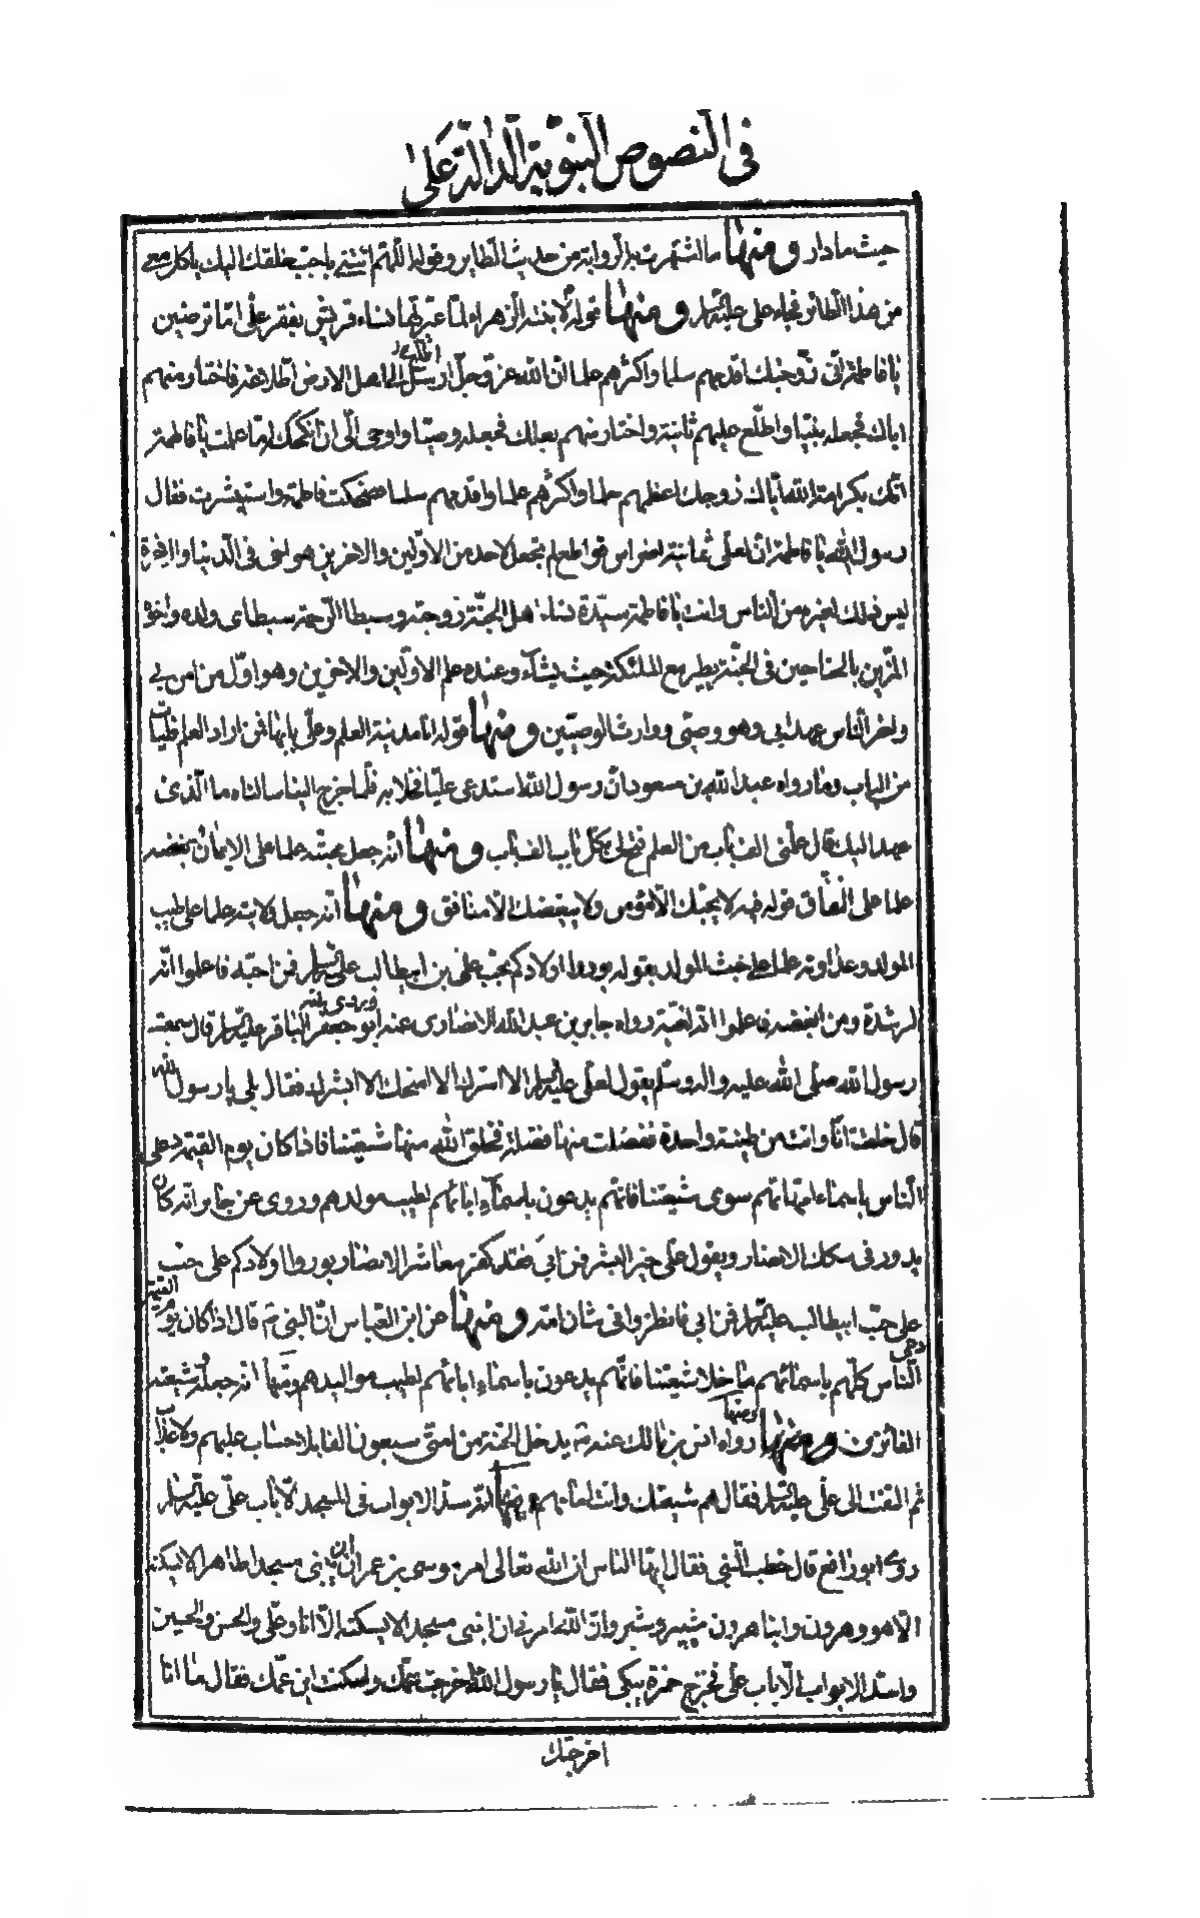 في النصوص النبوية الدالة على
حيث ما دار ومنها ما اشتهرت به الرواية من حديث الطاير وقوله اللهم ائتني باحب خلقك اليك ياكل معي
من هذا الطائر فجاء علي عليه السلم ومنها قوله لابنته الزهراء لما عيرتها نساء قريش بفقر علي اما ترضين
يا فاطمة اني زوجتك اقدمهم سلما واكثرهم علما ان الله عز وجل الى اهل الارض اطلاعة فاختار منهم
اباك فجعله نبيا واطلع عليهم ثانية واختار منهم بعلك فجعله وصيا واوحى الي ان انكحك اما علمت يا فاطمة
انك بكرامة الله اياك زوجك اعظمهم حلما واكثرهم علما واقدمهم سلما فضحكت فاطمة واستبشرت فقال
رسول الله يا فاطمة ان لعلي ثمانية اضراس قواطع لم تجعل لاحد من الاولين والاخرين هو اخي في الدنيا والاخرة
ليس ذلك لغيره من الناس وانت يا فاطمة سيدة نساء اهل الجنة زوجته وسبطا الرحمة سبطاى ولده واخو
المزين بالجناحين في الجنة يطير مع الملئكة حيث يشاء وعنده علم الاولين والاخرين وهو اول من امن بي
واخر الناس عهدا بي وهو وصيي ووارث الوصيين ومنها قوله انا مدينة العلم وعلي بابها فمن اراد العلم فليات
من الباب وما رواه عبد الله بن مسعود ان رسول الله استدعى عليا فخلا به فلما خرج الينا سالناه ما الذي
عهد اليك قال علمني الف باب من العلم فتح لي بكل باب الف باب ومنها انه جعل محبته علما على الايمان وبغضه
علما على النفاق قوله فيه لا يحبك الا مؤمن ولا يبغضك الا منافق ومنها انه جعل ولايته علما على طيب
المولد وعداوته علما على خبث المولد بقوله بوروا اولادكم بحب علي بن ابيطالب عليه السلم فمن احبه فاعلموا انه
لرشدة ومن ابغضه فاعلموا انه لغية رواه جابر بن عبد الله الانصاري عنه ابو جعفر الباقر عليه السلم قال سمعته
رسول الله صلى الله عليه واله وسلم يقول لعلي عليه السلم الا اسرك الا امنحك الا ابشرك فقال بلى يا رسول الله
قال خلقت انا وانت من طينة واحدة ففضلت منها فضلة فخلق الله منها شيعتنا فاذا كان يوم القيمة دعي
الناس باسماء امهاتهم سوى شيعتنا فانهم يدعون باسماء ابائهم لطيب مولدهم وروى عن جابر انه كان
يدور في سكك الانصار ويقول علي خير البشر فمن ابى فقد كفر معاشر الانصار بوروا اولادكم على حب
علي بن ابيطالب عليه السلم فمن ابى فانظروا في شان امه ومنها عن ابن العباس ان النبي ص قال اذا كان يوم القيمة دعي
الناس كلهم باسمائهم ما خلا شيعتنا فانهم يدعون باسماء ابائهم لطيب مواليدهم ومنها انه جعله وشيعته
الفائزون ومنها رواه انس بن مالك عنه ص يدخل الجنة من امتي سبعون الفا بلا حساب عليهم ولا عذاب
ثم التفت الى علي عليه السلم فقال هم شيعتك وانت امامهم ومنها انه سد الابواب في المسجد الا باب علي عليه السلم
روى ابو رافع قال خطب النبي فقال ايها الناس ان الله تعالى امر موسى بن عمران ان يبني مسجدا طاهرا لا يسكنه
الا هو وهرون وابنا هرون شبير وشبر وان الله امرني ان ابني مسجدا لا يسكنه الا انا وعلي والحسن والحسين
واسد الابواب الا باب علي فخرج حمزة يبكي فقال يا رسول الله اخرجت عمك واسكنت ابن عمك فقال ما انا
اخرجتك